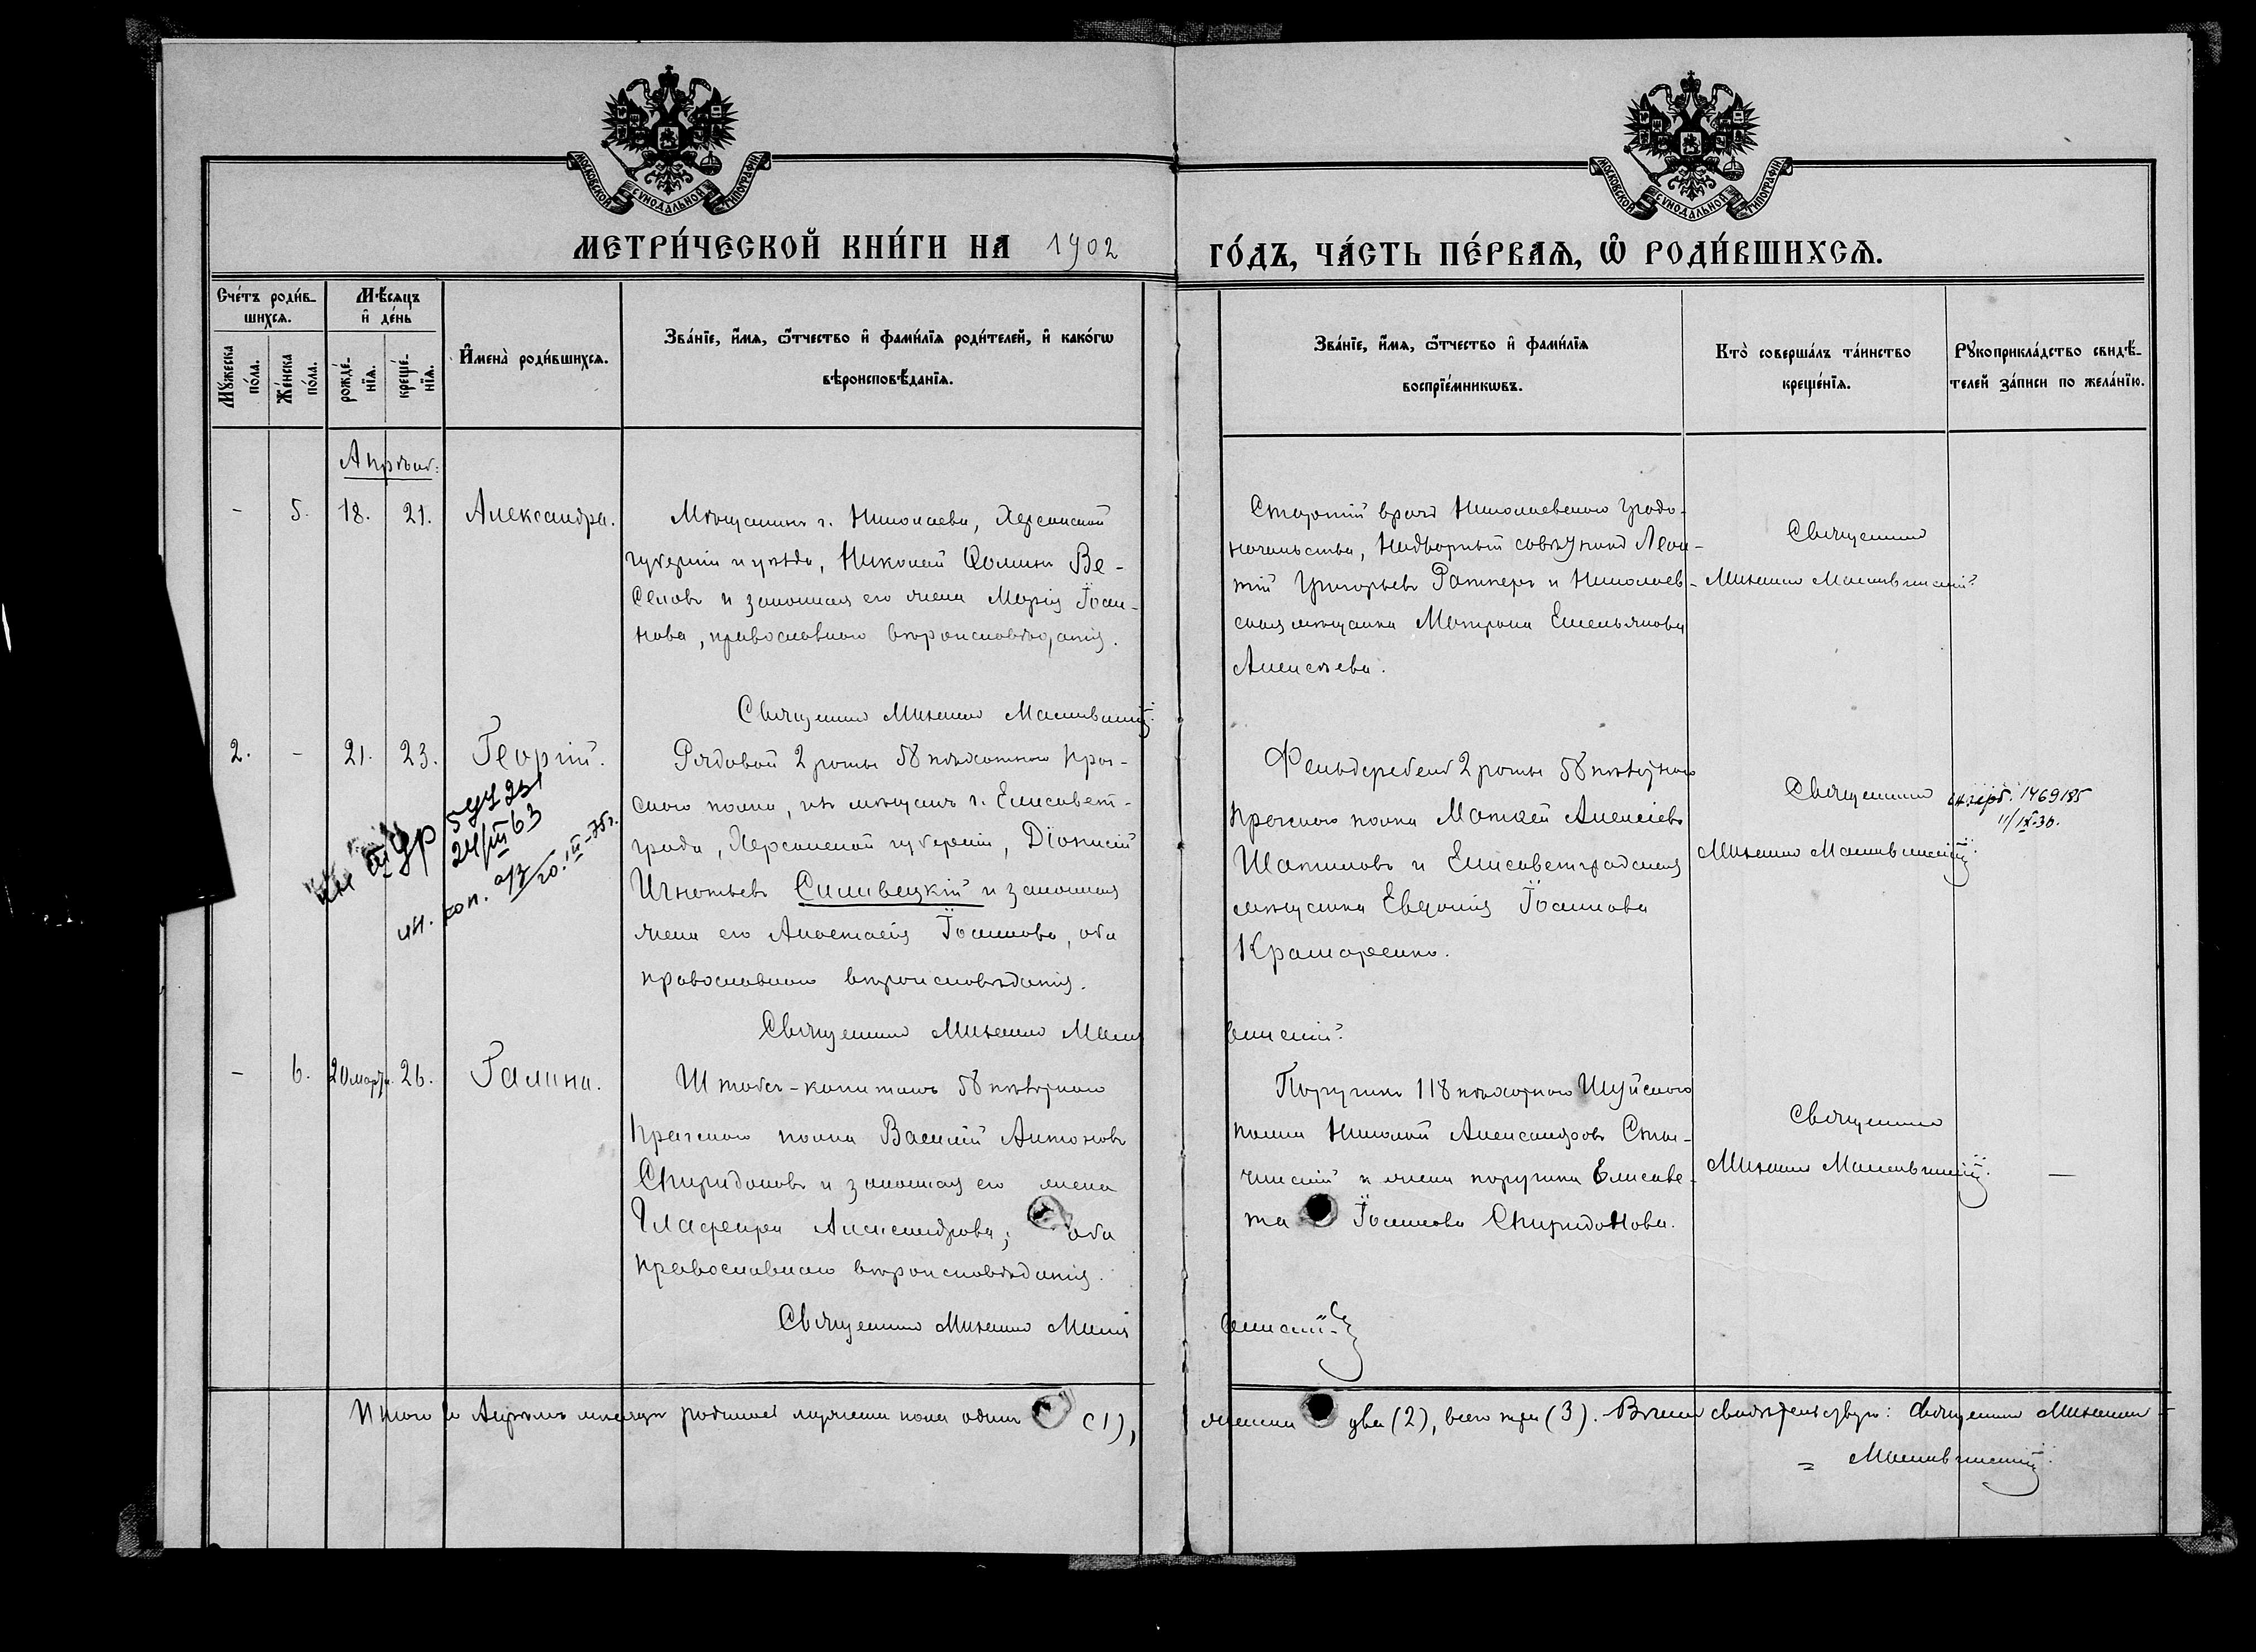 МОСКОВСКОЙ СѴНОДАЛЬНОЙ ТИПОГРАФІИ
МОСКОВСКОЙ СѴНОДАЛЬНОЙ ТИПОГРАФІИ
МЕТРИ́ЧЕСКОЙ КНИ́ГИ НА 1902
ГО́ДЪ, ЧА́СТЬ ПЕ́РВАѦ, Ѡ҆ РОДИ́ВШИХСѦ.
Сче́тъ роди́в-
шихсѧ.
Мѣ́сѧцъ
и҆ де́нь
Мꙋ́жеска
по́ла.
Же́нска
по́ла.
рожде́-
нїѧ.
креще́-
нїѧ.
И҆мена̀ роди́вшихсѧ.
Зва́нїе, и҆́мѧ, ѻ҆́тчество и҆ фами́лїѧ роди́телей, и҆ како́гѡ
вѣроисповѣ́данїѧ.
Зва́нїе, и҆́мѧ, ѻ҆́тчество и҆ фами́лїѧ
воспрїе́мникѡвъ.
Кто̀ соверша́лъ та́инство
креще́нїѧ.
Рꙋкоприкла́дство свидѣ́-
телей за́писи по жела́нїю.
Апрѣль:
- 5. 18. 21. Александра.
Мѣщанинъ г. Николаева, Херсонской
губерніи и уѣзда, Николай Ѳоминъ Ве-
селовъ и законная его жена Марія Іоан-
нова, православного вѣроисповѣданія.
Священникъ Михаилъ
Старшій врачъ Николаевского Градо-
начальства, Надворный совѣтникъ Леон-
тій Григорьевъ Ратнеръ и Николаев-
ская мѣщанка Матрона Емельянова
Алексѣева.
Священникъ
Михаилъ
2. - 21. 23. Георгій.
Рядовой 2 роты 58 пѣхотного Праг-
ского полка, изъ мѣщанъ г. Елисавет-
града, Херсонской губерніи, Діонисій
Игнатьевъ Силивецкій и законная
жена его Анастасія Іоаннова, оба
православного вѣроисповѣданія.
Священникъ Михаилъ
24/III 63
20.III-75г.
Фельдфебель 2 роты 58 пѣхотного
Пражского полка Матѳей Алексіевъ
Шатиловъ и Елисаветградская
мѣщанка Евдокія Іоаннова
Крамаренко.
Священникъ
Михаилъ
1469185
11/IX-36.
- 6. 20 марта. 26. Галина.
Штабсъ-капитанъ 58 пѣхотного
Прагского полка Василій Антоновъ
Спиридоновъ и законная его жена
Глафира Александрова; оба
православного вѣроисповѣданія.
Священникъ Михаилъ
Поручикъ 118 пѣхотного Шуйского
полка Николай Александровъ
и жена поручика Елисаве-
та Іоаннова Спиридонова.
Священникъ
Михаилъ
-
Итого въ Апрѣлѣ мѣсяцѣ родилось мужеска пола одинъ (1),
женска два (2), всего три (3). Вѣрно свидѣтельствую: Священникъ Михаилъ